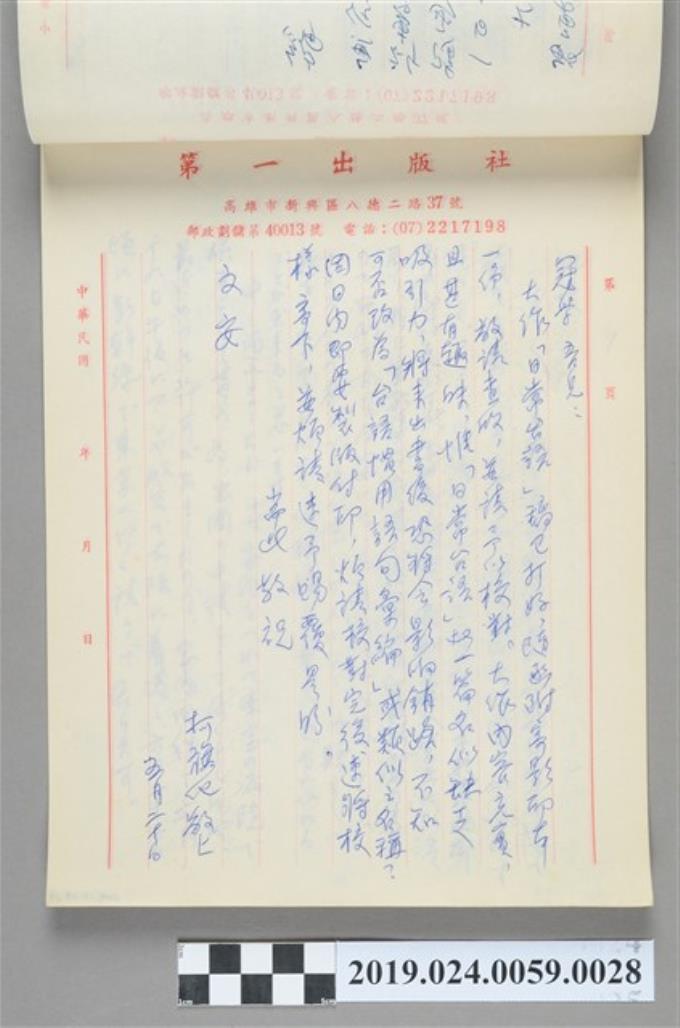 第一出版社
高雄市新興區八德二路37號
郵政劃儲第40013號 電話：(07)2217198
第 頁
冠學吾兄：
大作「日常台語」稿已打好，隨函附寄影印本
一份，敬請查收，並請予以校對。大作內容充實，
且甚有趣味，惟「日常台語」此一篇名似缺乏
吸引力，將來出書後恐難免影响銷路，不知
可否改為「台語慣用語句彙編」或類似之名稱？
因日內即要製版付印，煩請校對完後速將校
樣寄下，並煩請速予賜覆是盼。
耑此 敬祝
文安
柯旗化敬上
五月二十日
中華民國 年 月 日
2019.024.0059.0028